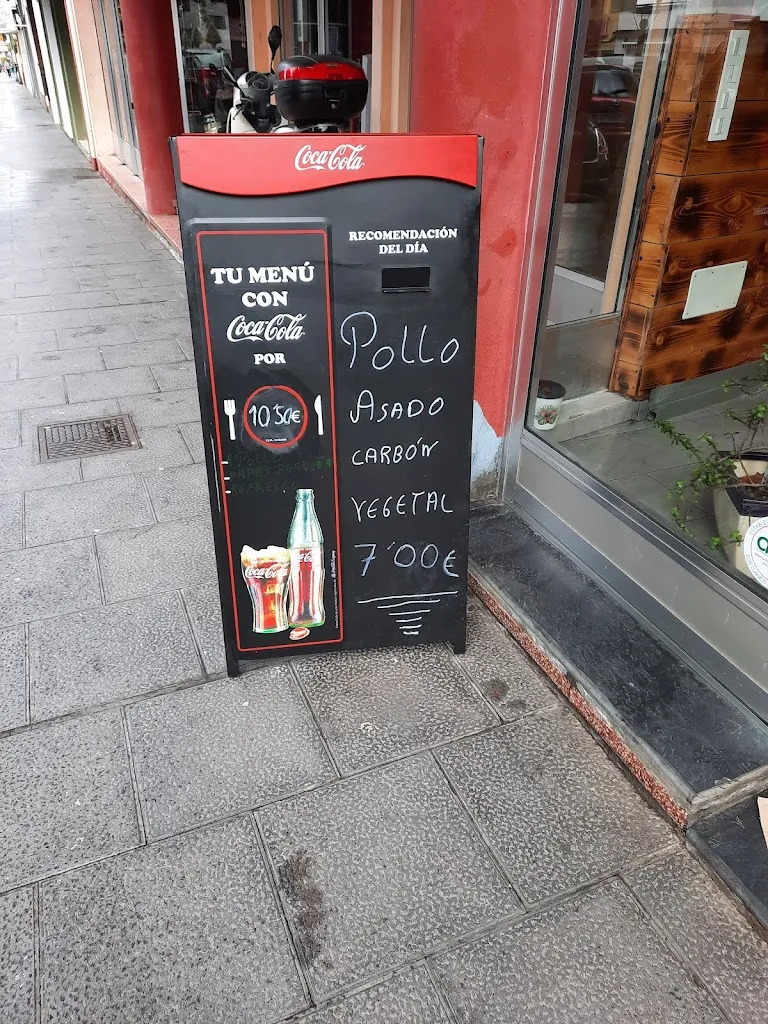 Coca-Cola
TU MENÚ
CON
Coca-Cola
POR
10'50€
Pollo
REFRESCO
Coca-Cola
Coca-Cola
RECOMENDACIÓN
DEL DÍA
Pollo
ASADO
CARBÓN
VEGETAL
7'00€